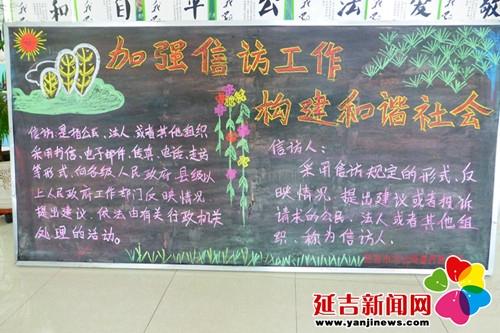 加强信访工作
构建和谐社会
信访：是指公民、法人或者其他组织
采用书信、电子邮件、传真、电话、走访
等形式，向各级人民政府县级以
上人民政府工作部门反映情况，
提出建议，依法由有关行政机关
处理的活动。
信访人：
采用信访规定的形式，反
映情况，提出建议或者投诉
请求的公民、法人或者其他组
织，称为信访人。
延吉新闻网
www.yanjinews.com